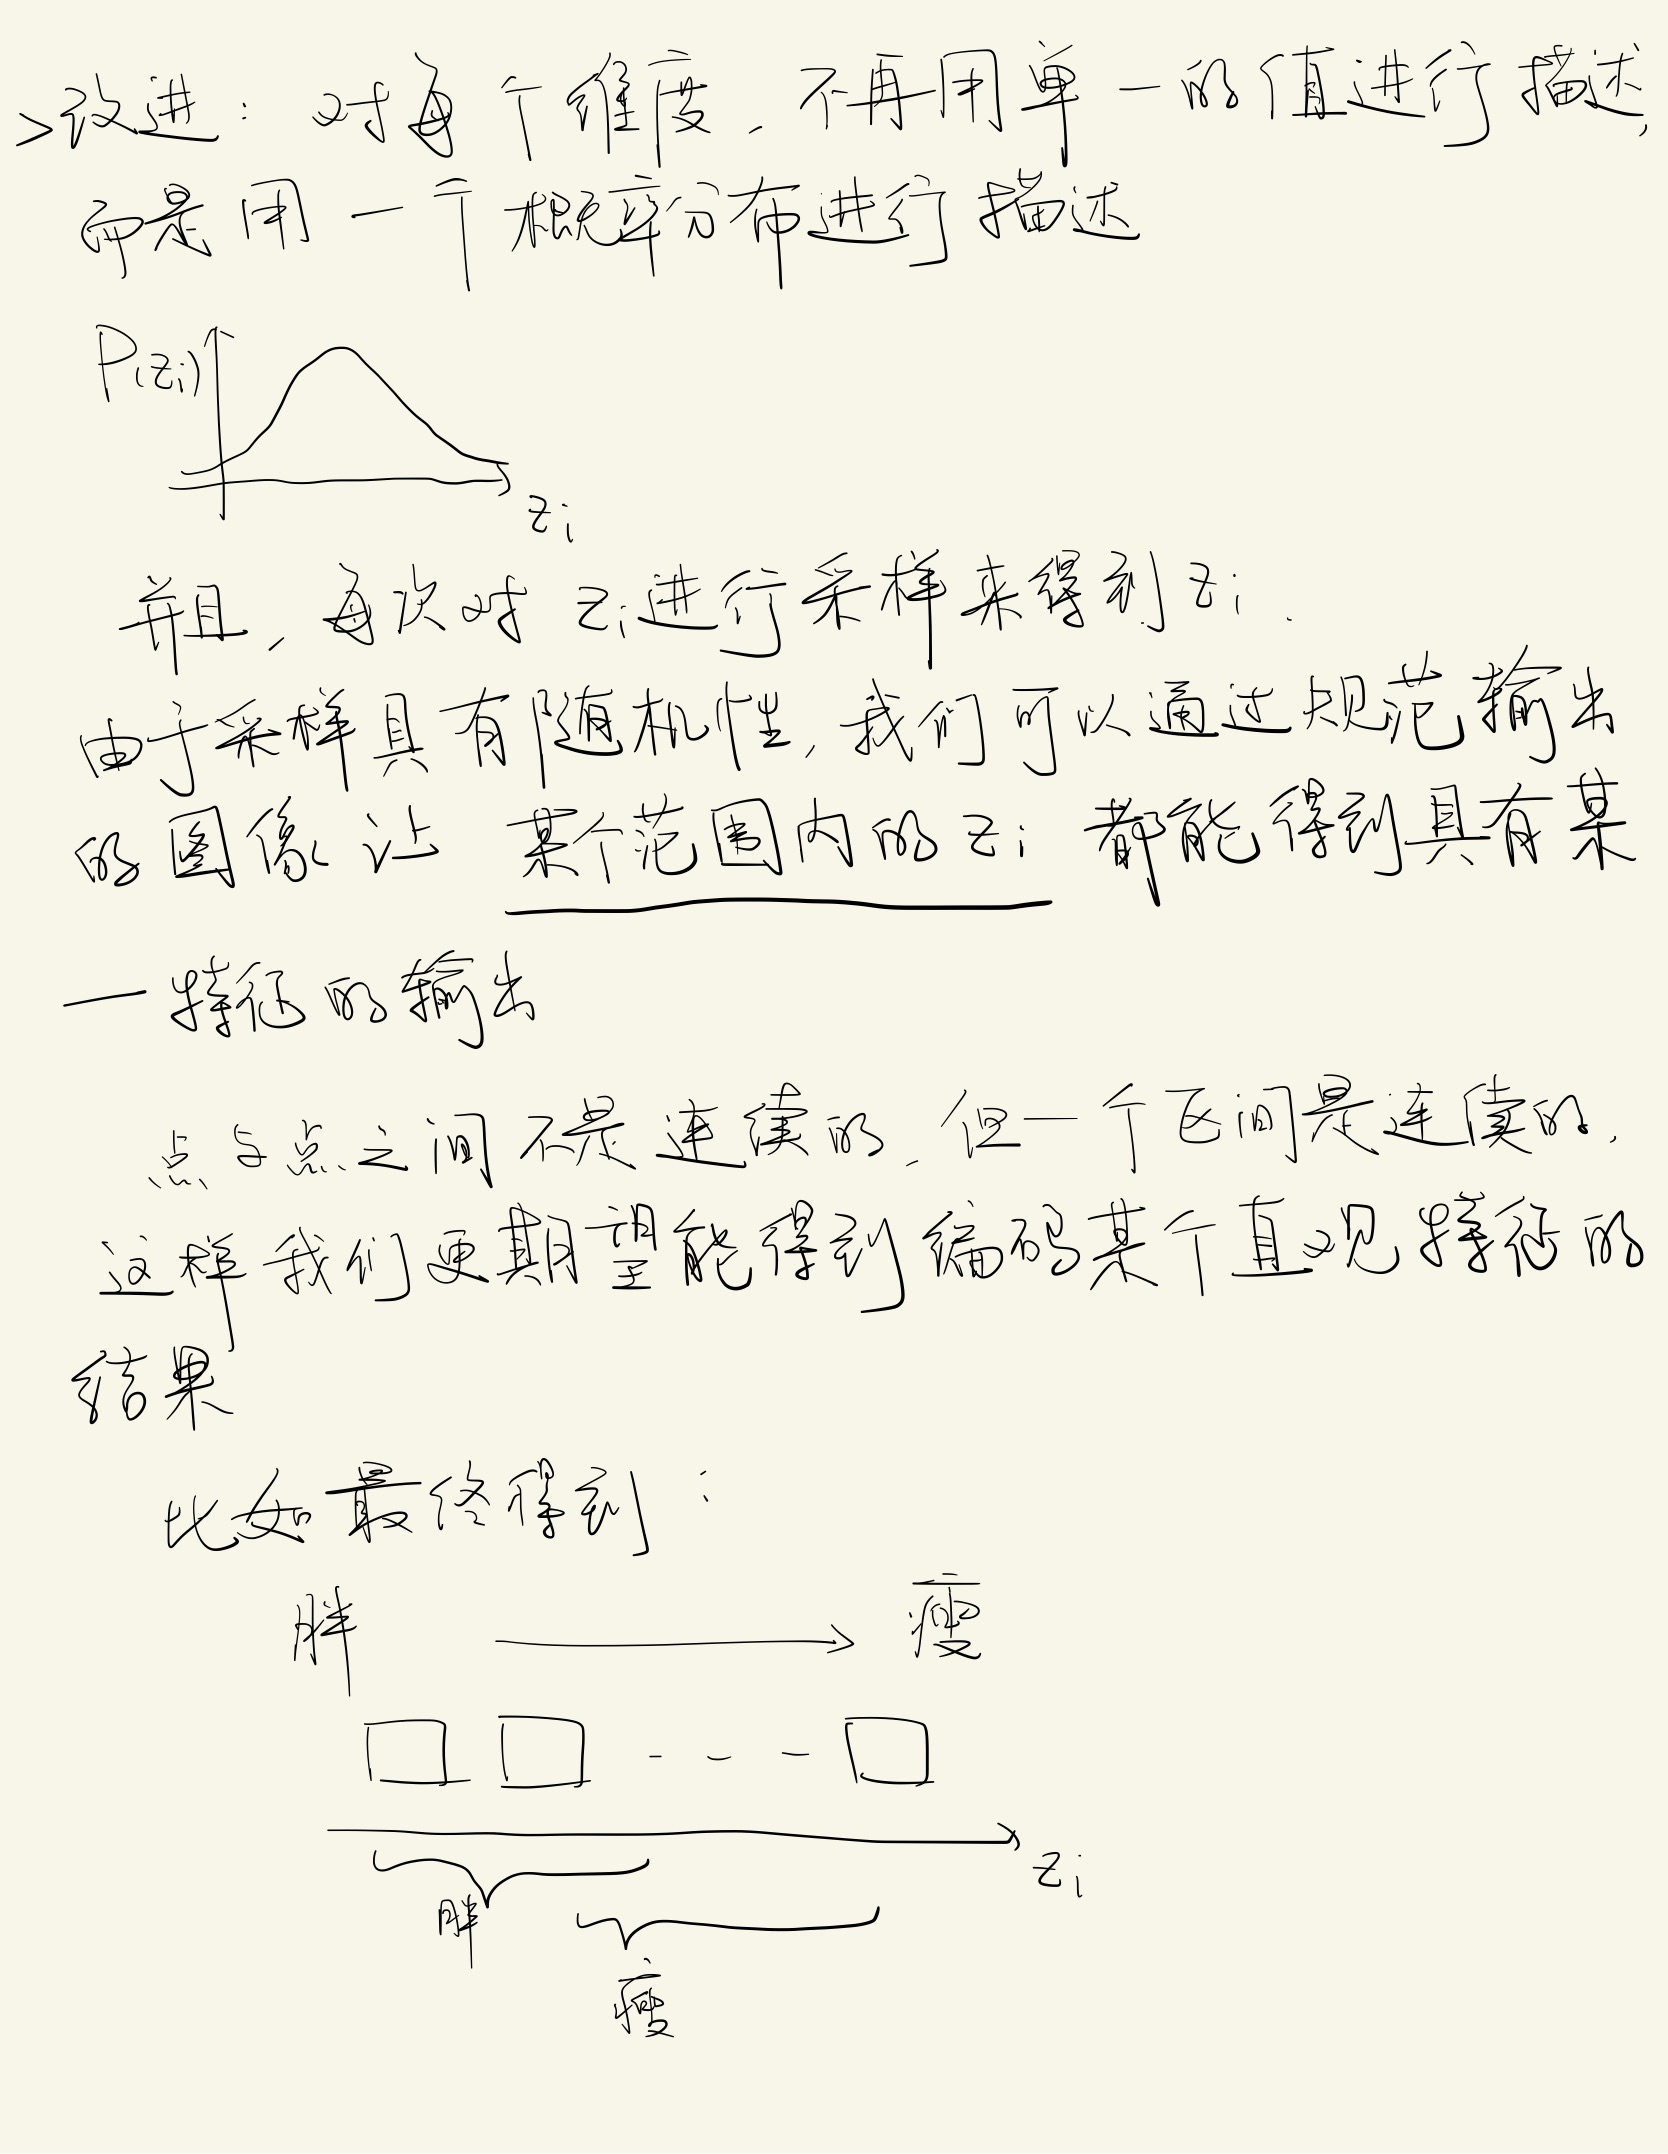 >改进：对每个维度，不再用单一的值进行描述，
而是用一个概率分布进行描述
P(zi)
zi
并且，每次对 zi 进行采样来得到 zi．
由于采样具有随机性，我们可以通过规范输出
的图像让 某个范围内的 zi 都能得到具有某
一特征的输出
点与点之间不是连续的，但一个区间是连续的．
这样我们更期望能得到编码某个直观特征的
结果
比如最终得到：
胖 瘦
zi
胖
瘦